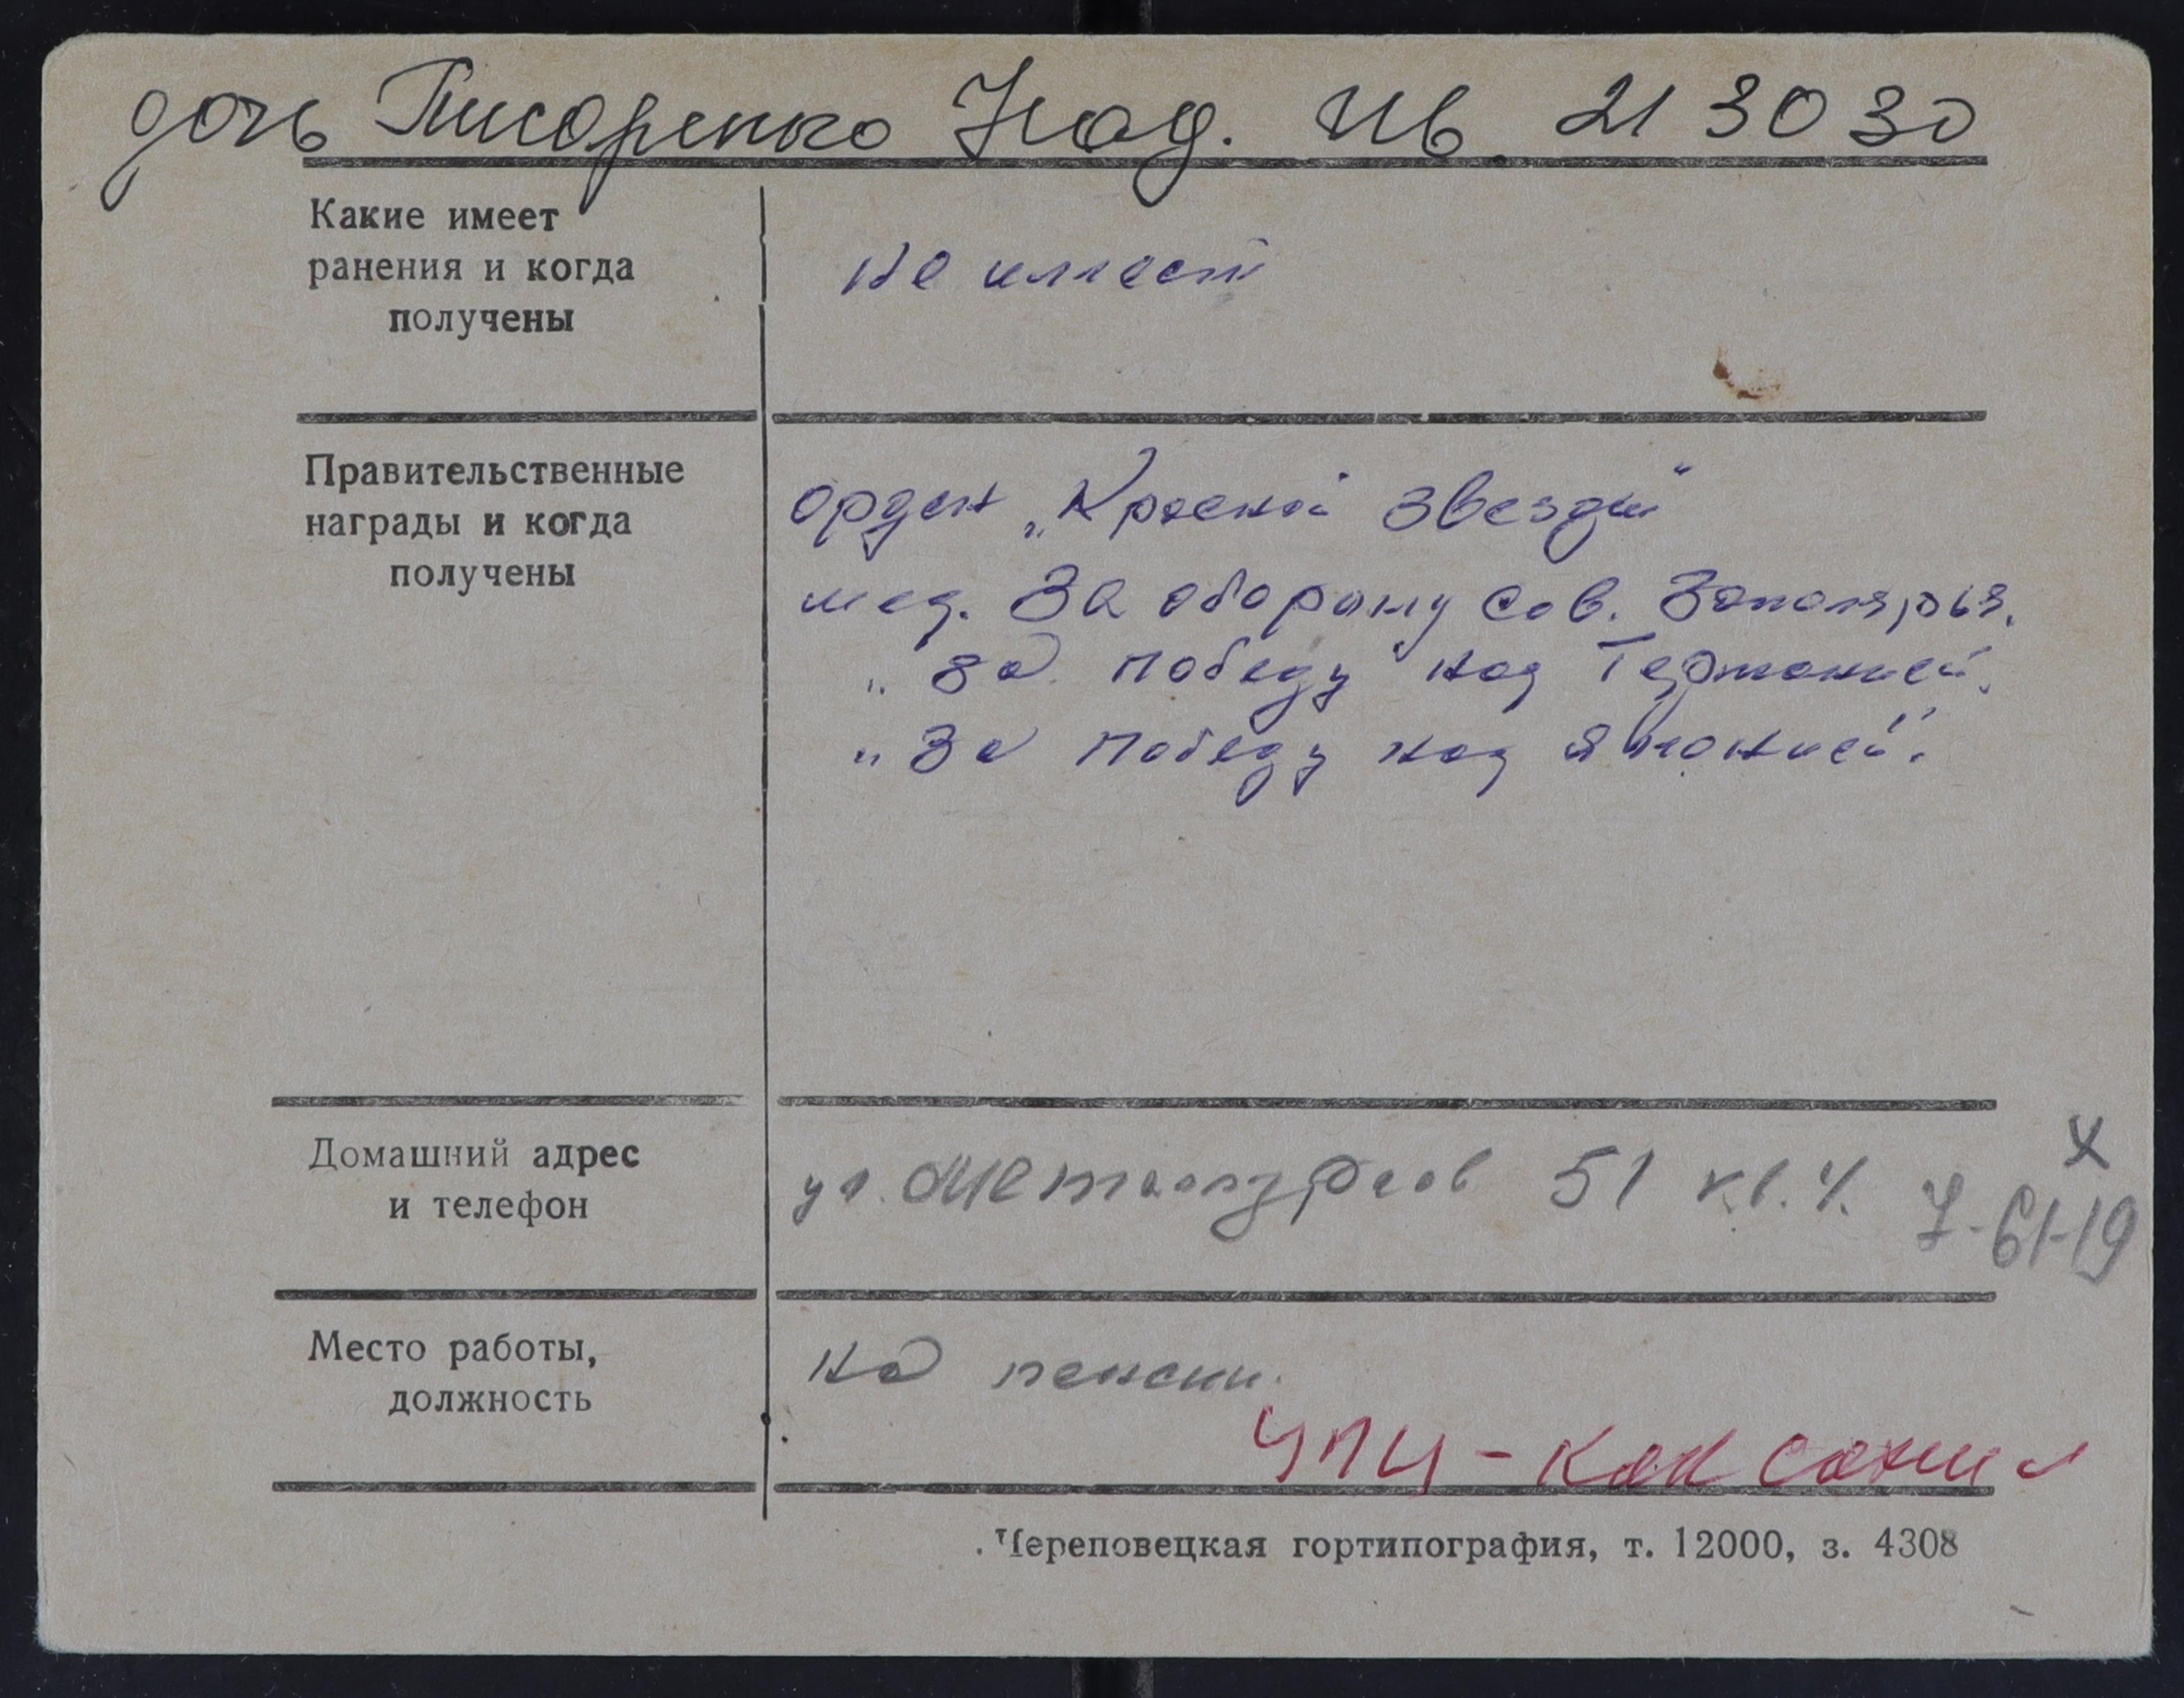 дочь Писаренко Над. Ив. 21 30 30
Какие имеет
ранения и когда
получены
не имеет
Правительственные
награды и когда
получены
Орден „Красной Звезды"
мед. За оборону Сов. Заполярья.
„За победу над Германией.
„За победу над Японией".
Домашний адрес
и телефон
ул. Металлургов 51 кв. 4.
х
7-61-19
Место работы,
должность
на пенсии.
УПЦ -
Череповецкая гортипография, т. 12000, з. 4308